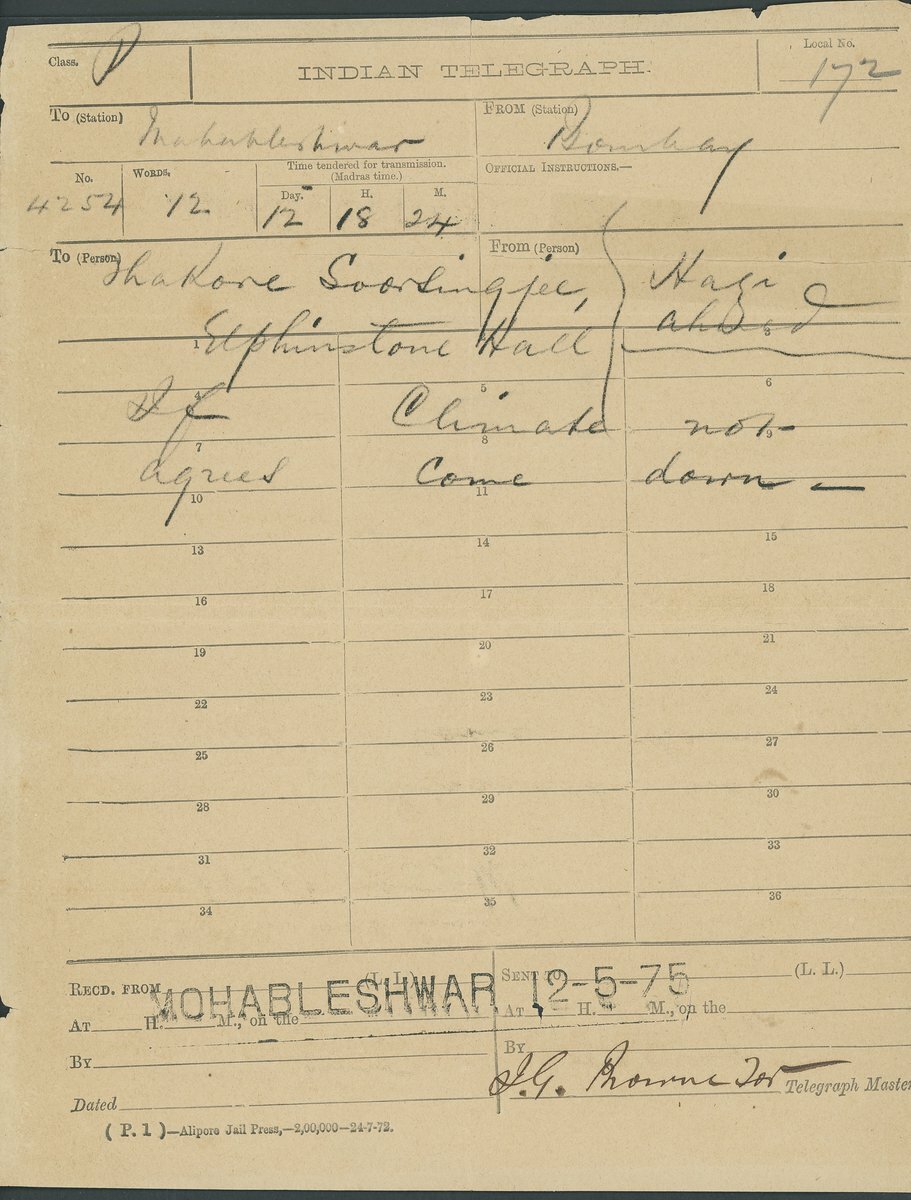 Class. P
INDIAN TELEGRAPH.
Local No.
172
To (Station)
Mahableshwar
FROM (Station)
Bombay
No.
4254
WORDS.
12
Time tendered for transmission.
(Madras time.)
Day. H. M.
12 18 24
OFFICIAL INSTRUCTIONS.—
To (Person)
Thakore Soorsingjee,
Elphinstone Hall
From (Person)
Hagi
ahmed
1 3
If Climate not
4 5 6
agrees come down —
7 8 9
10 11
13 14 15
16 17 18
19 20 21
22 23 24
25 26 27
28 29 30
31 32 33
34 35 36
RECD. FROM (L. L.)
MOHABLESHWAR 12-5-75
AT H. M., on the
BY
Dated
SENT TO (L. L.)
AT H. M., on the
BY
J.G. Browne for Telegraph Master
( P. 1 )—Alipore Jail Press,—2,00,000—24-7-72.